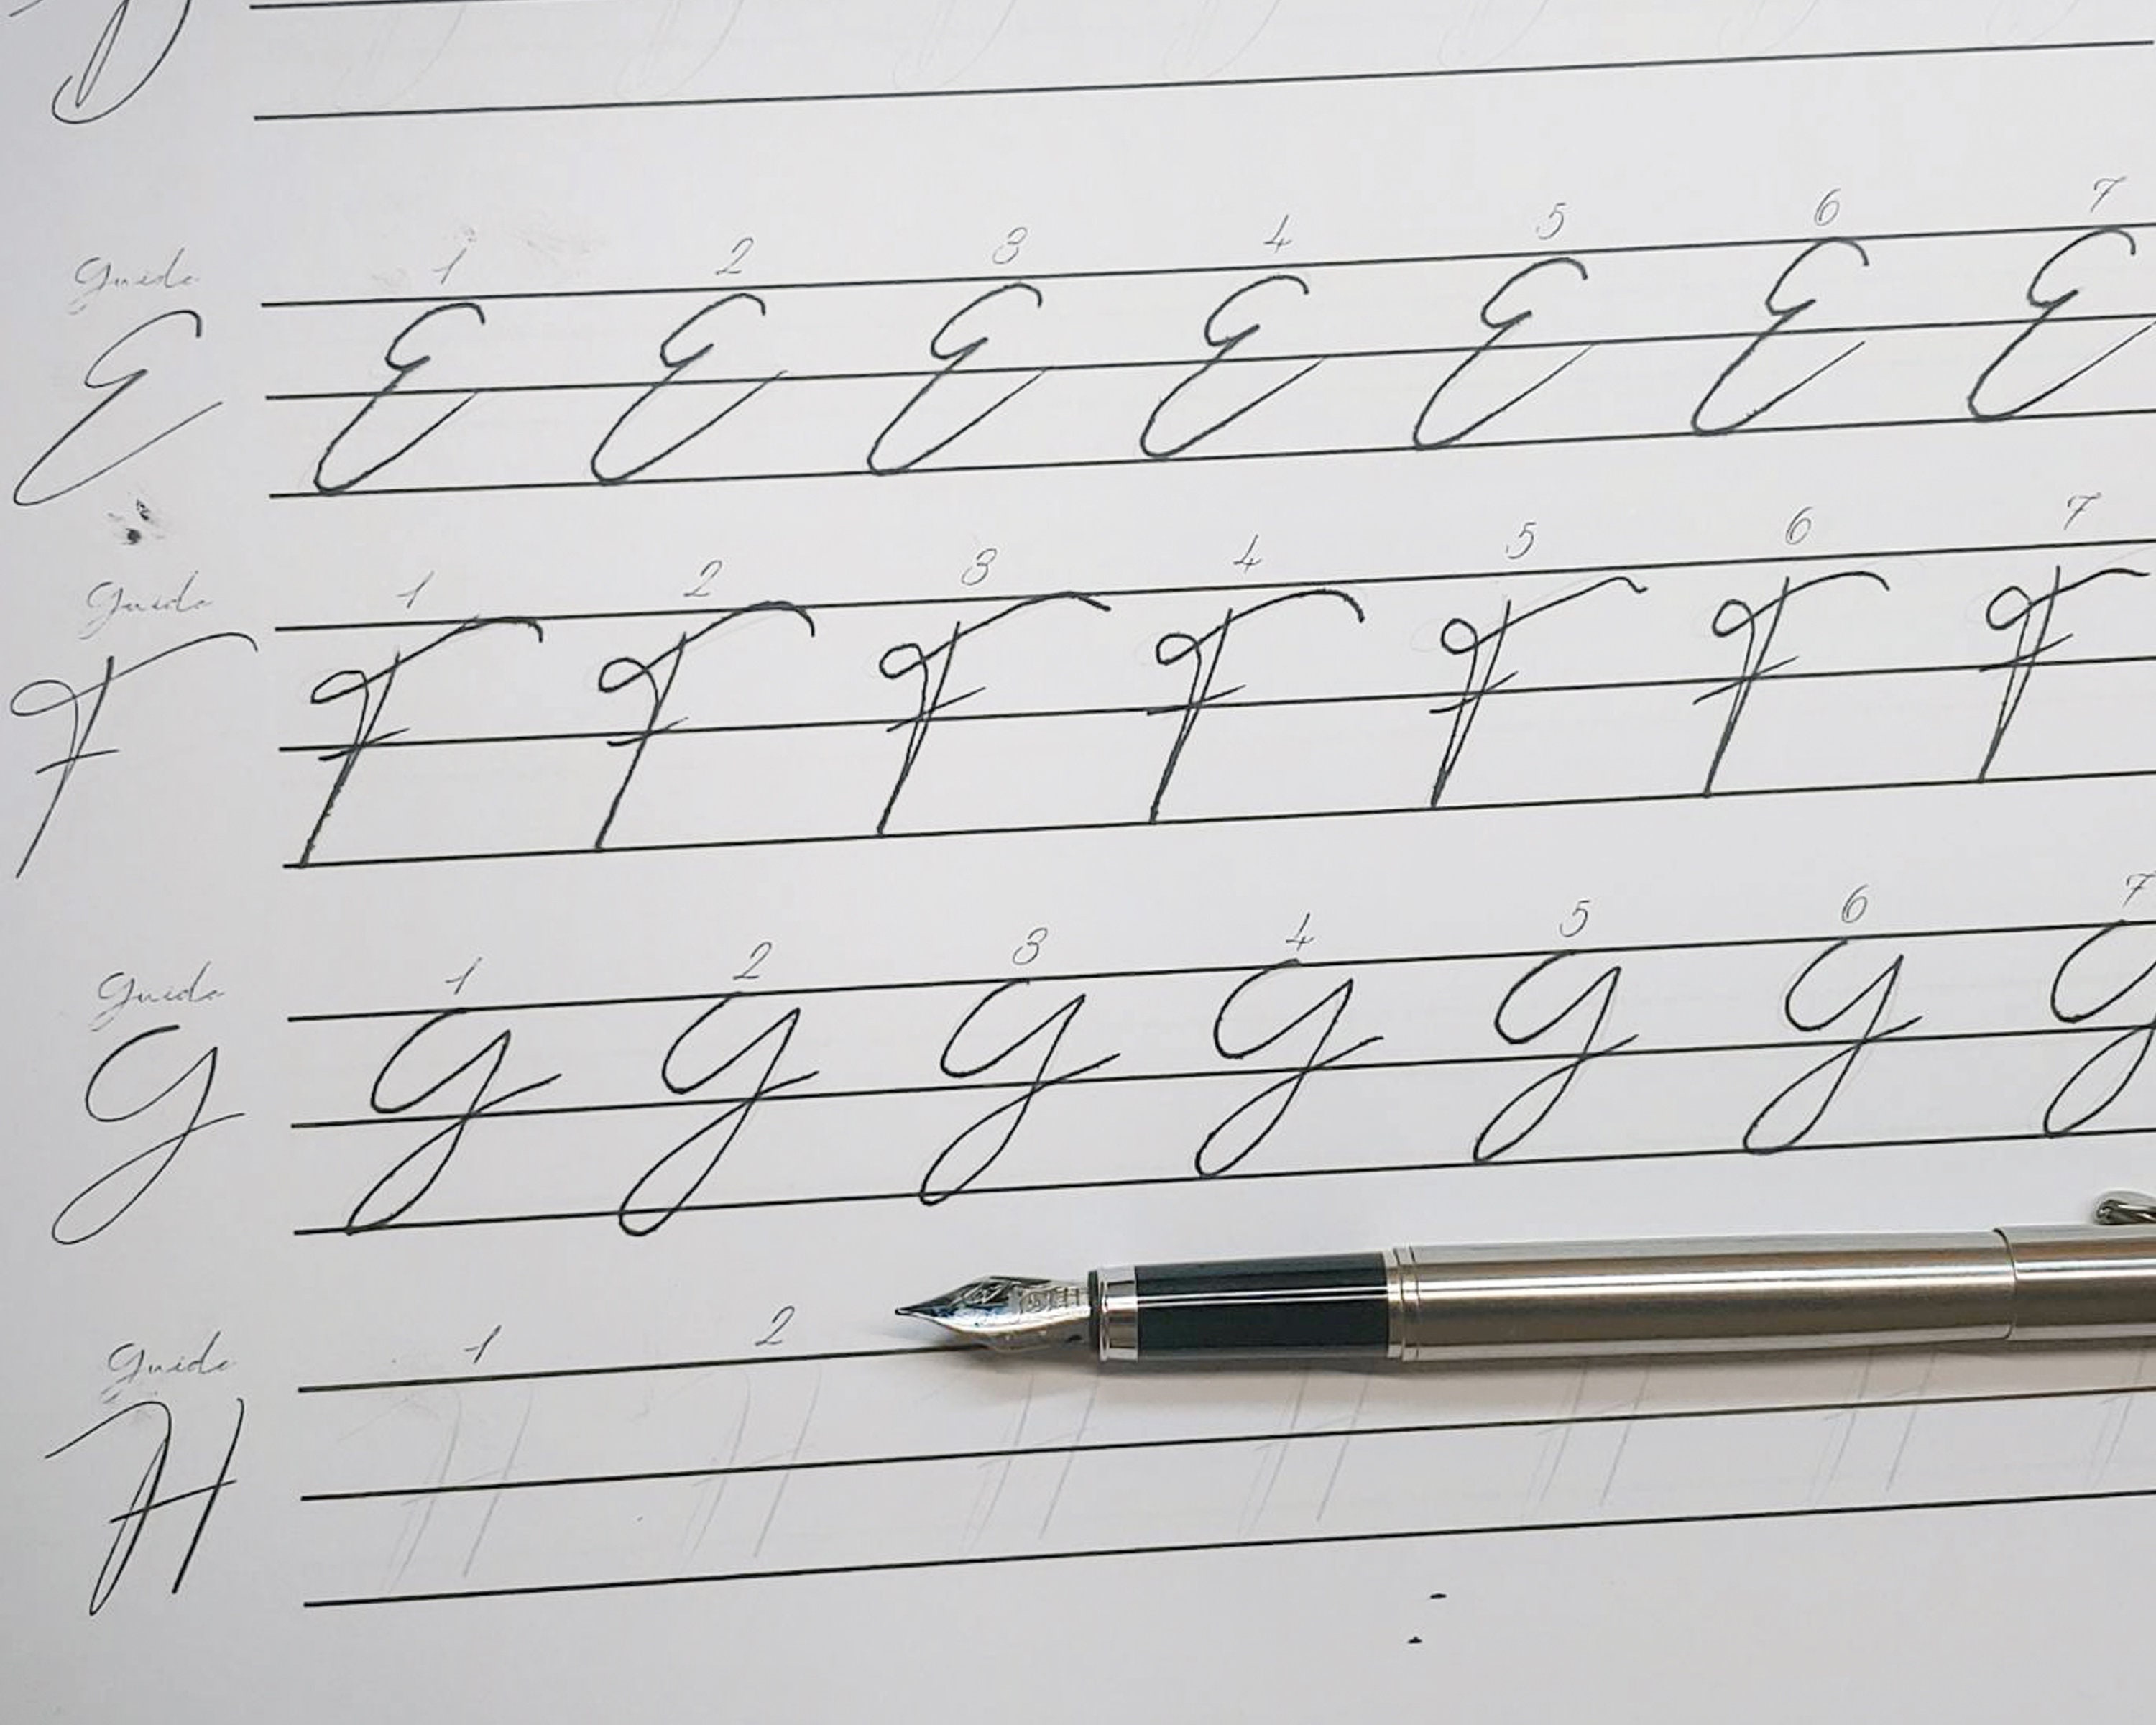 D
Guide 1 2 3 4 5 6 7
E E E E E E E E
Guide 1 2 3 4 5 6 7
F F F F F F F F
Guide 1 2 3 4 5 6 7
G G G G G G G G
Guide 1 2
H H H H H H H H